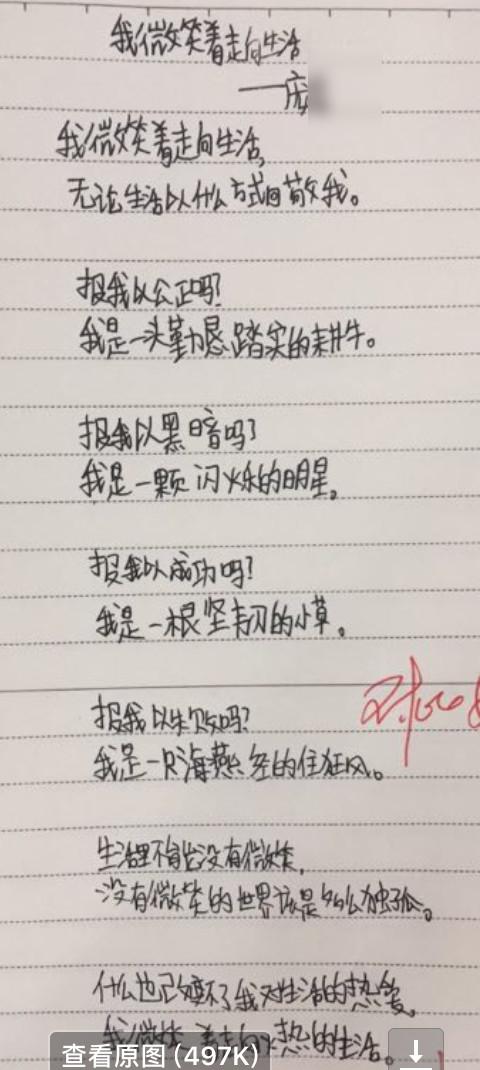 我微笑着走向生活
——庞
我微笑着走向生活,
无论生活以什么方式回敬我。
报我以公正吗?
我是一头勤恳踏实的耕牛。
报我以黑暗吗?
我是一颗闪烁的明星。
报我以成功吗?
我是一根坚韧的小草。
报我以失败吗?
我是一只海燕经的住狂风。
生活里不能没有微笑,
没有微笑的世界该是多么独孤。
什么也改变不了我对生活的热爱,
我微笑着走向火热的生活。
查看原图(497K)